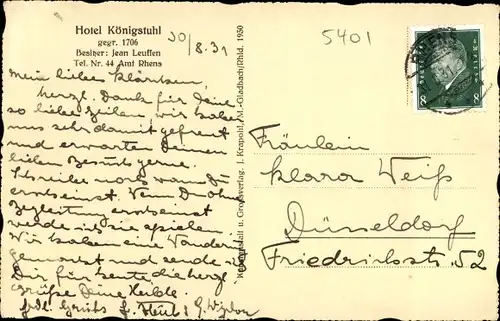 Hotel Königstuhl
gegr. 1706
Besitzer: Jean Leuffen
Tel. Nr. 44 Amt Rhens
30/8.31
5401
Mein liebes Klärchen,
herzl. Dank für Deine
so lieben Zeilen, wir haben
uns sehr damit gefreut
und erwarten Deinen
lieben Besuch gerne.
Schreibe noch wann Du
erscheinst. Wenn Du ohne
Begleitung erscheinst
werde ich sie spielen.
Wir haben eine Wanderung
gemacht und sende ich
Dir für heute die herzl.
Grüße Deine Helde.
frdl. Grüße
Kunstanstalt u. Großverlag. J. Krapohl, M.-Gladbach/Rhld. 1930
Fräulein
Klara Weiß
Düsseldorf
Friedrichstr. 52
RHENS
8
8